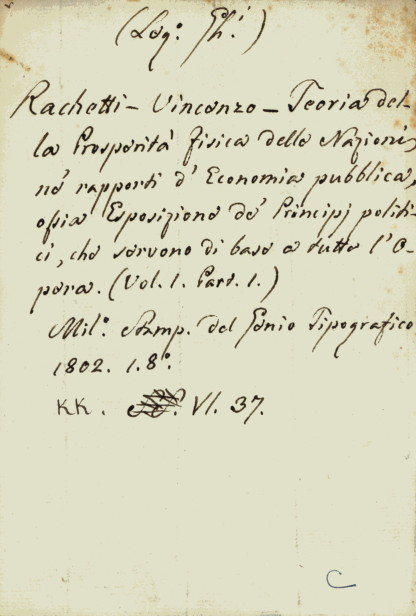 Rachetti - Vincenzo - Teoria del-
la Prosperità fisica delle Nazioni,
ne' rapporti d' Economia pubblica,
ossia Esposizione de' Principj politi-
ci, che servono di base a tutta l' O-
pera. (Vol. 1. Part. 1.)
Mil.º Stamp. del Genio Tipografico
1802. 1. 8.º
KK. VI. 37.
C